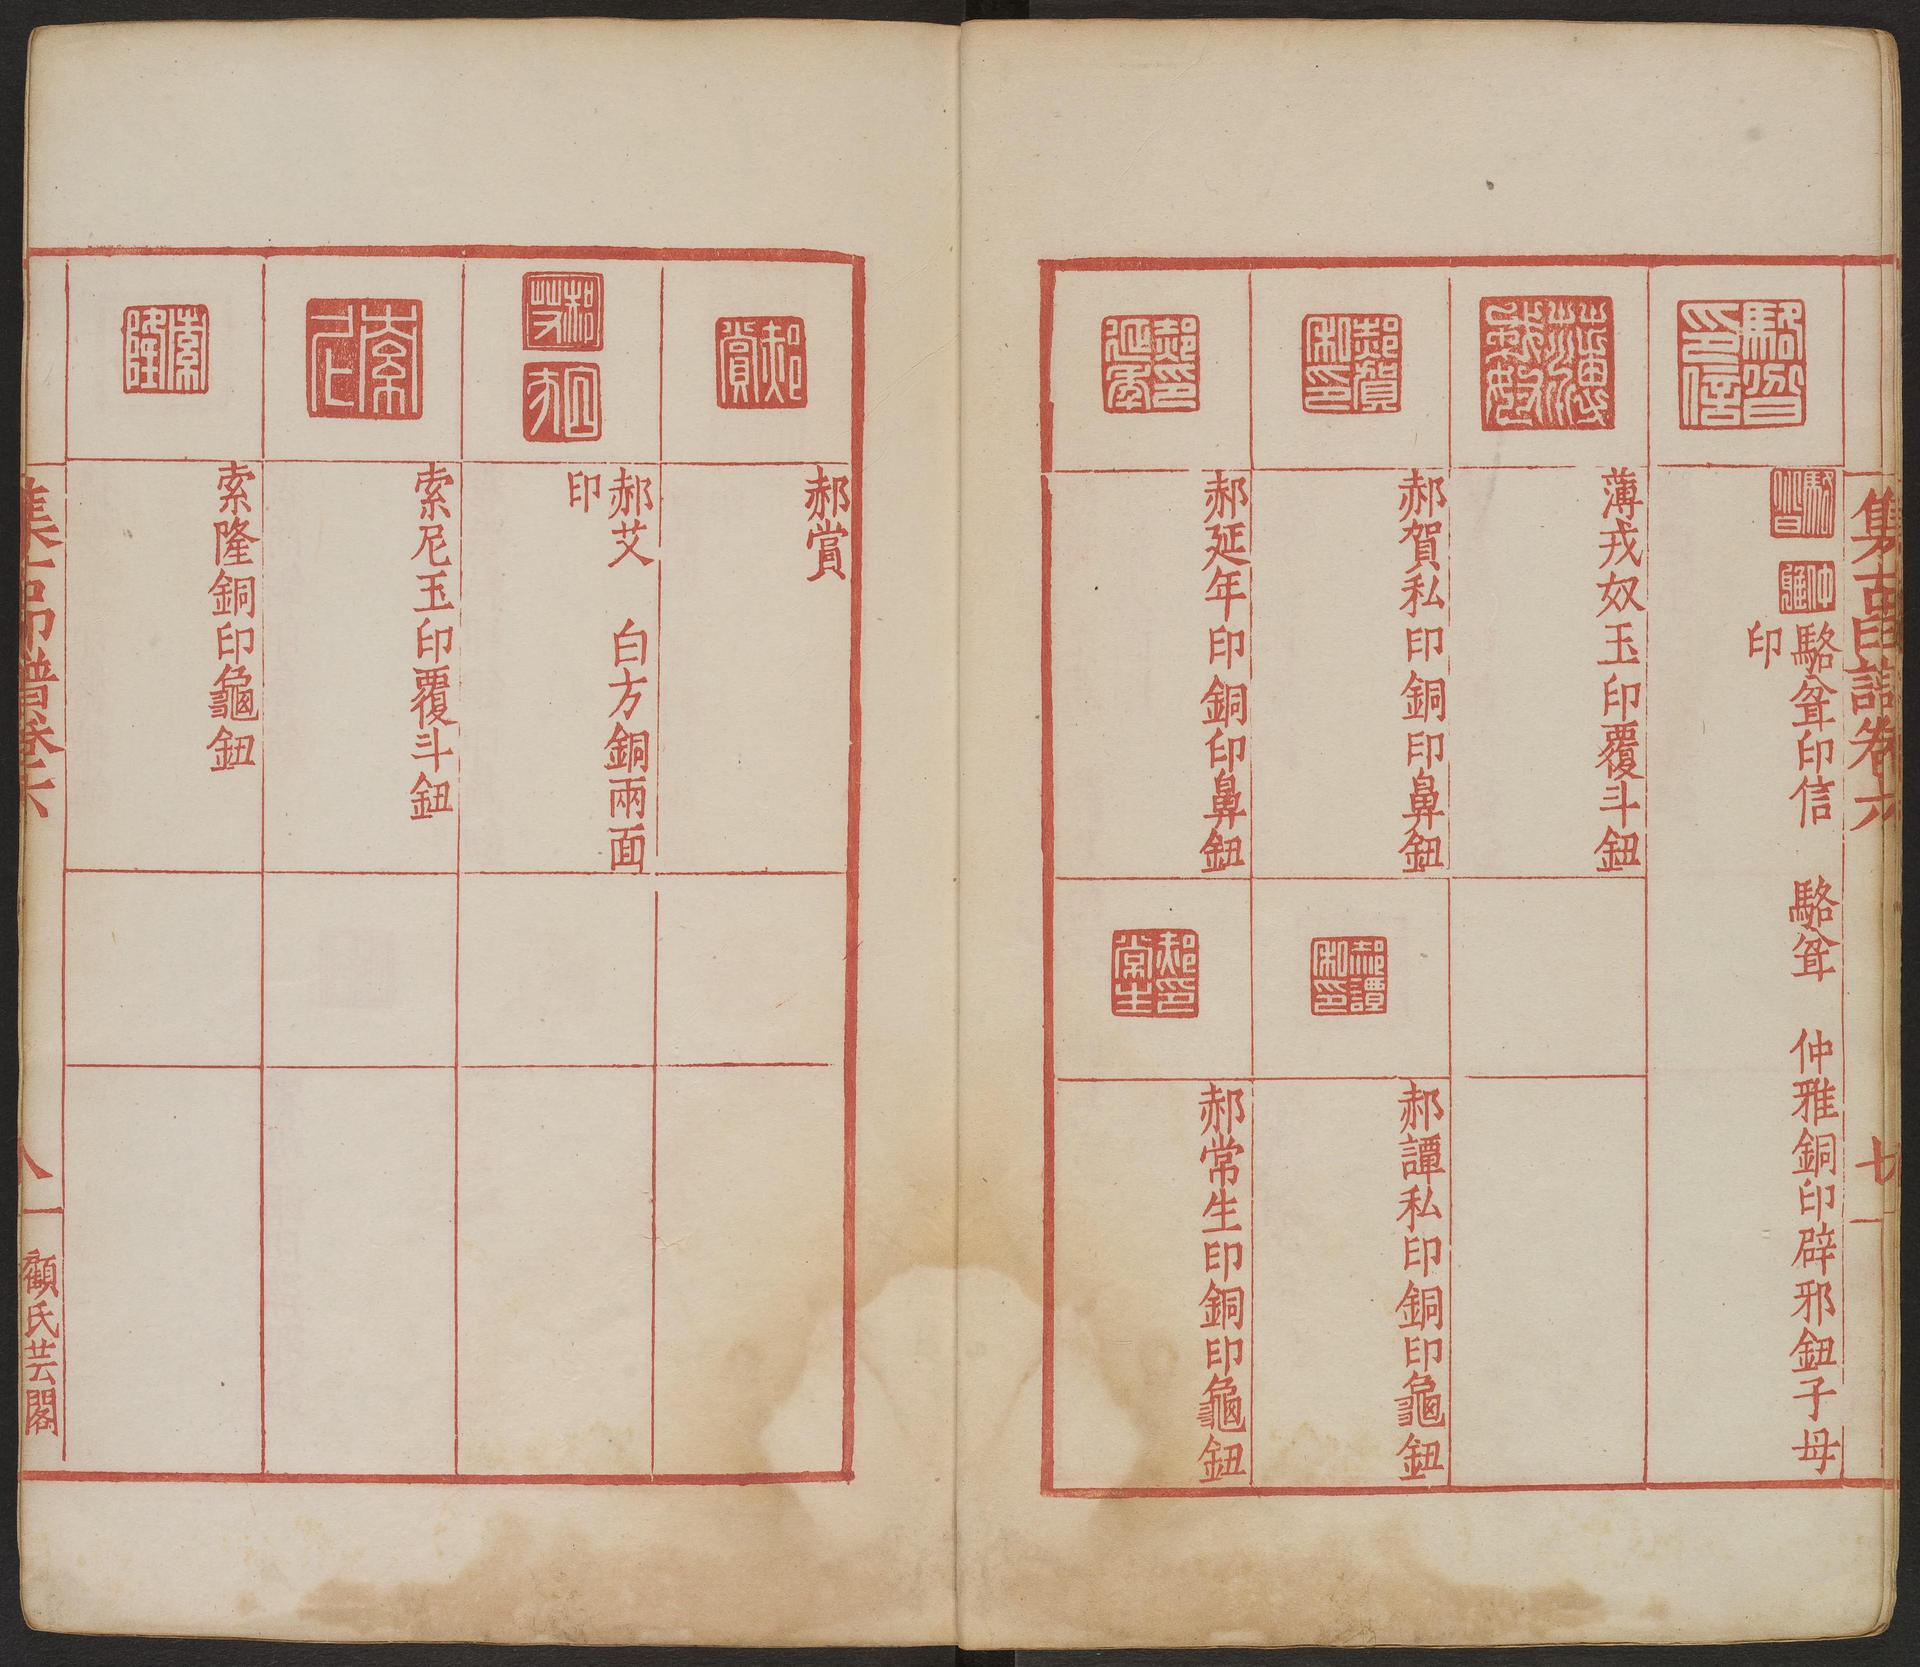 集古印譜卷六
七
駱耸印信　駱耸　仲雅銅印辟邪鈕子母
印
薄戎奴玉印覆斗鈕
郝賀私印銅印鼻鈕
郝譚私印銅印龜鈕
郝延年印銅印鼻鈕
郝常生印銅印龜鈕
郝賞
郝艾　白方銅兩面
印
索尼玉印覆斗鈕
索隆銅印龜鈕
集古印譜卷六
八
顧氏芸閣